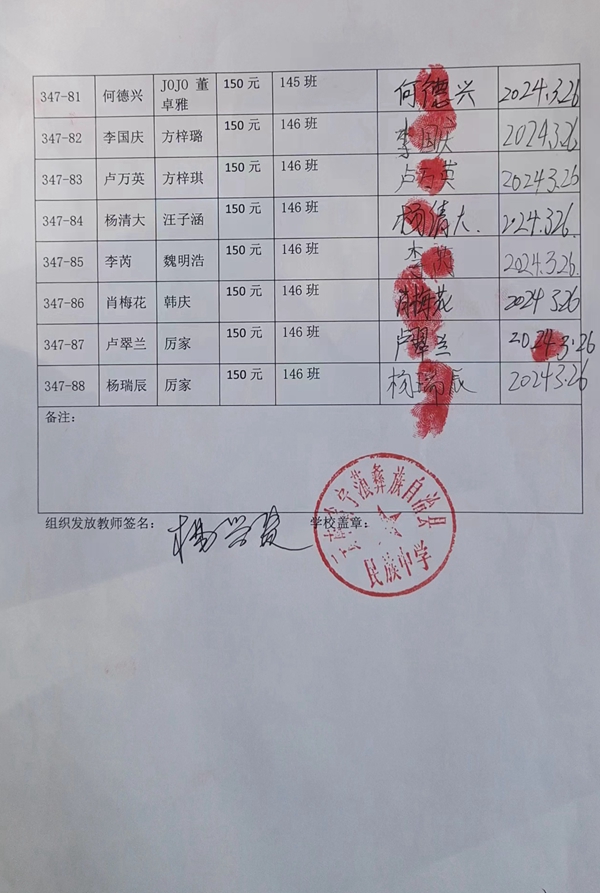 347-81 何德兴 JOJO 董卓雅 150 元 145 班 何德兴 2024.3.26
347-82 李国庆 方梓璐 150 元 146 班 李国庆 2024.3.26
347-83 卢万英 方梓琪 150 元 146 班 卢万英 2024.3.26
347-84 杨清大 汪子涵 150 元 146 班 杨清大. 2024.3.26.
347-85 李芮 魏明浩 150 元 146 班 2024.3.26.
347-86 肖梅花 韩庆 150 元 146 班 肖梅花 2024 3.26
347-87 卢翠兰 厉家 150 元 146 班 卢翠兰 2024.3.26
347-88 杨瑞辰 厉家 150 元 146 班 杨瑞辰 2024 3.26
备注：
组织发放教师签名： 学校盖章：
云南省宁蒗彝族自治县
民族中学